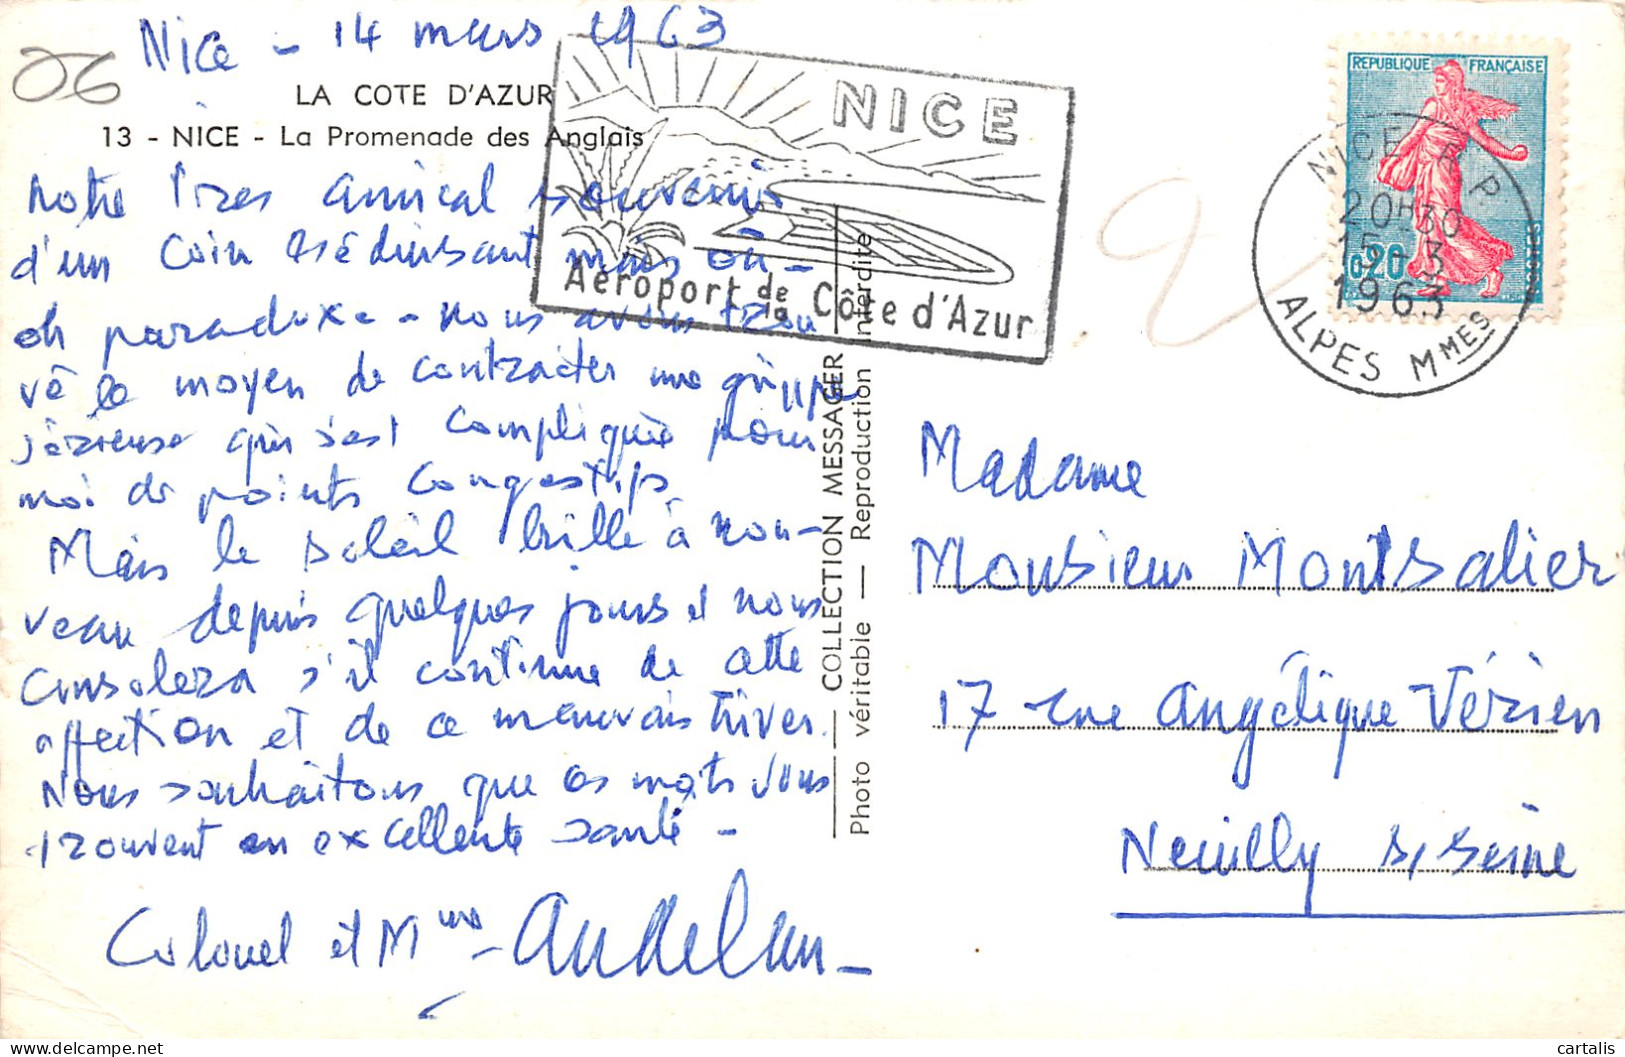 Nice - 14 mars 1963
06
LA COTE D'AZUR
13 - NICE - La Promenade des Anglais
Notre très amical souvenir
d'un coin très séduisant mais où -
oh paradoxe - nous avons trou
vé le moyen de contracter une grippe
sérieuse qui s'est compliquée pour
moi de points congestifs.
Mais le soleil brille à nou-
veau depuis quelques jours et nous
consolera s'il continue de cette
affection et de ce mauvais hiver.
Nous souhaitons que ces mots vous
trouvent en excellente santé -
Colonel et Mme
NICE
Aéroport de la Côte d'Azur
COLLECTION MESSAGER
Photo véritable — Reproduction interdite
REPUBLIQUE FRANÇAISE
0,20
POSTES
NICE R.P.
20H30
15-3
1963
ALPES MMES
Madame
Monsieur Montsalier
17 rue Angélique Vérien
Neuilly s/Seine
cartalis